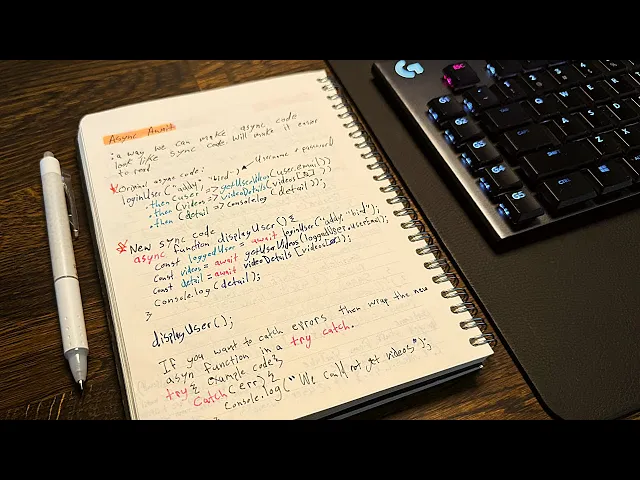 Async Await
: a way we can make async code
look like sync code. Will make it easier
to read
Original async code: Username + password
loginUser("addy", "bird")
.then (user => getUserVideos(user.email))
.then (videos => videoDetails(videos[0]))
.then (detail => console.log(detail));
New sync code
async function displayUser() {
const loggedUser = await loginUser("addy", "bird");
const videos = await getUserVideos(loggedUser.userEmail);
const detail = await videoDetails[videos[0]);
console.log(detail);
}
displayUser();
If you want to catch errors then wrap the new
asyn function in a try catch.
try { example code }
catch (err) {
console.log("We could not get videos");
G
ESC
G1
G2
G3
G4
G5